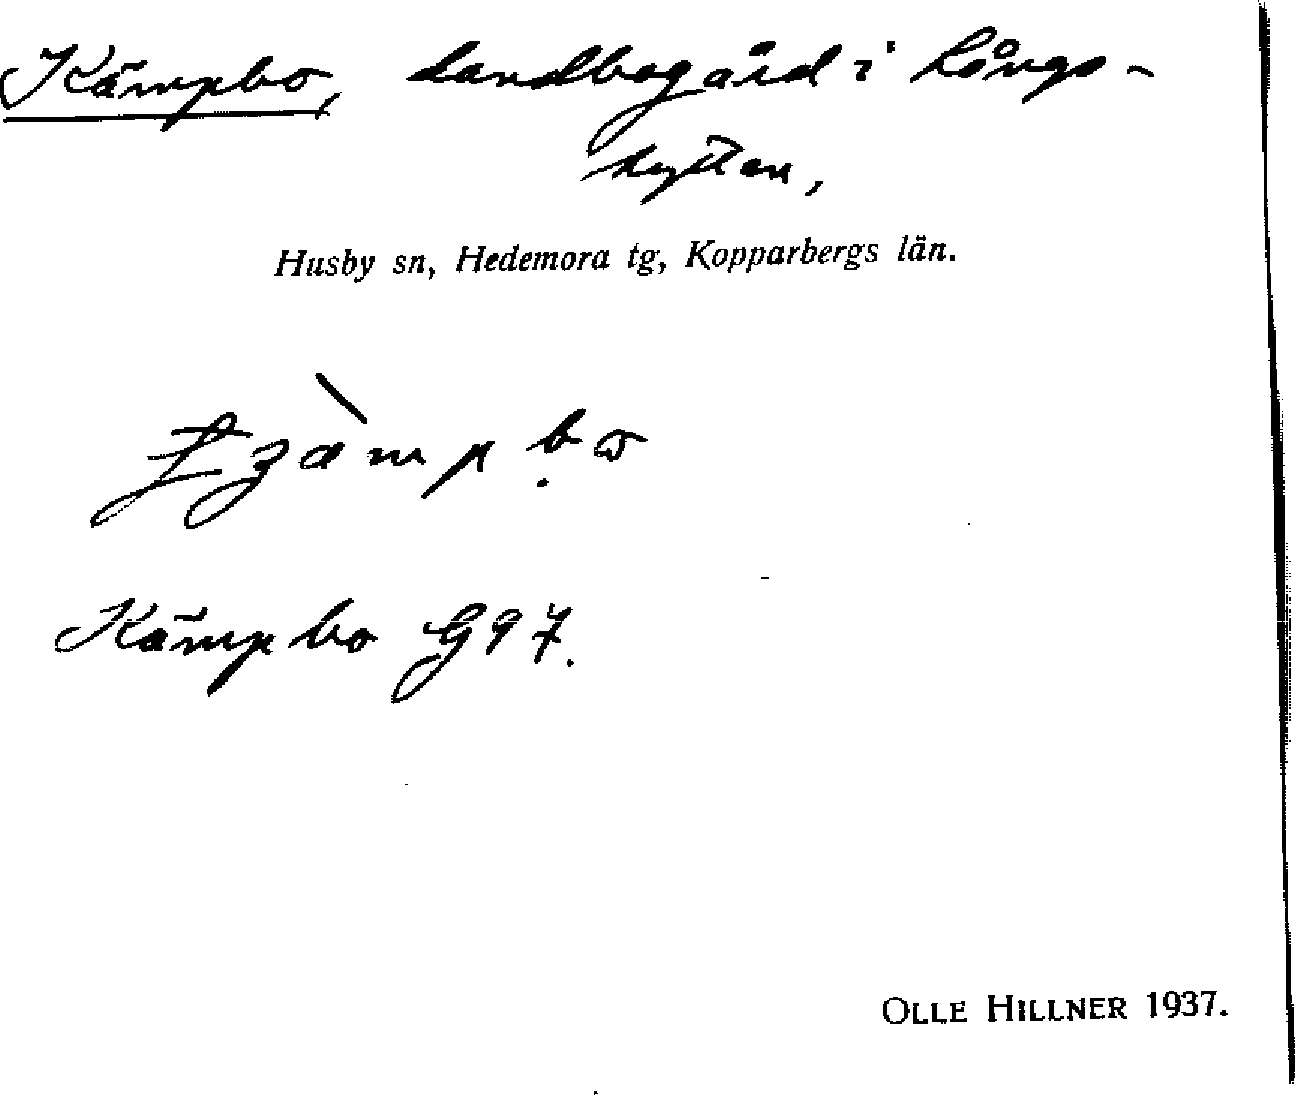 Kämpbo, landbogård i Långs-
hyttan,
Husby sn, Hedemora tg, Kopparbergs län.
Kämpbo G97.
OLLE HILLNER 1937.